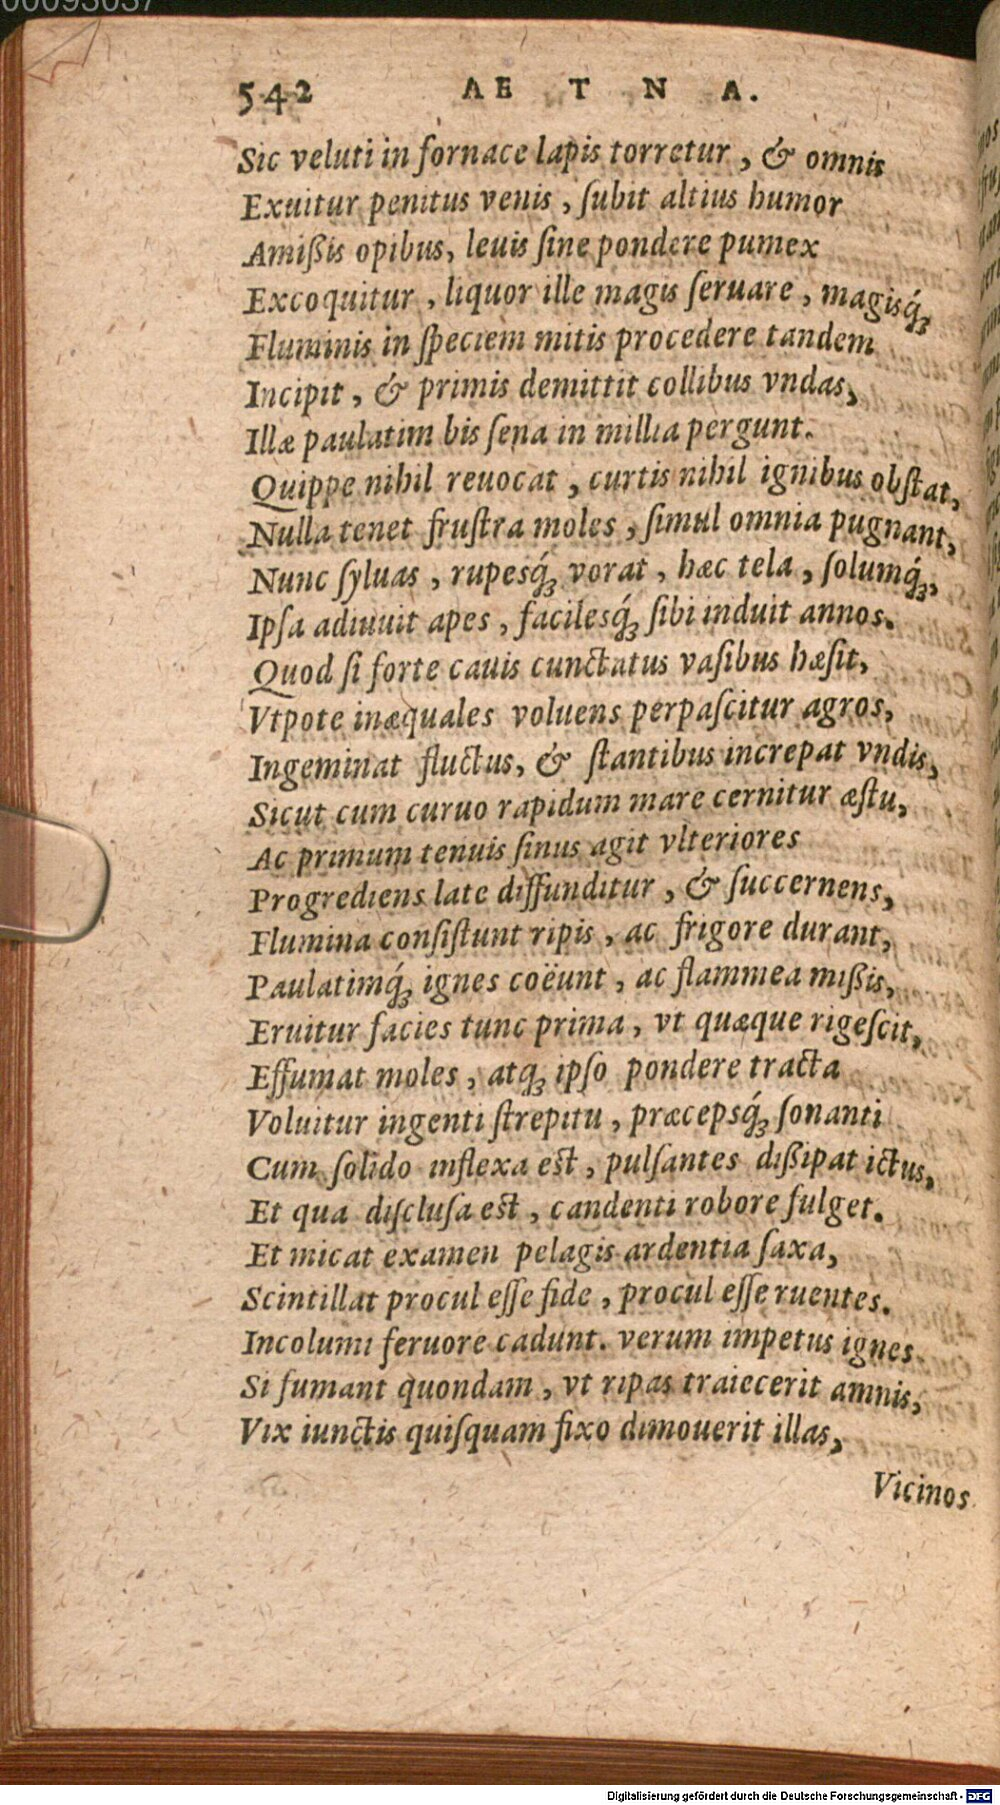 00093037
542 AETNA.
Sic veluti in fornace lapis torretur, & omnis
Exuitur penitus venis, ſubit altius humor
Amiſſis opibus, leuis ſine pondere pumex
Excoquitur, liquor ille magis ſeruare, magisq́ꝫ
Fluminis in ſpeciem mitis procedere tandem
Incipit, & primis demittit collibus vndas,
Illæ paulatim bis ſena in millia pergunt.
Quippe nihil reuocat, curtis nihil ignibus obſtat,
Nulla tenet fruſtra moles, ſimul omnia pugnant,
Nunc ſyluas, rupesq́ꝫ vorat, hæc tela, ſolumq́ꝫ,
Ipſa adiuuit apes, facilesq́ꝫ ſibi induit annos.
Quod ſi forte cauis cunctatus vaſibus hæſit,
Vtpote inæquales voluens perpaſcitur agros,
Ingeminat fluctus, & ſtantibus increpat vndis,
Sicut cum curuo rapidum mare cernitur æſtu,
Ac primum tenuis ſinus agit vlteriores
Progrediens late diffunditur, & ſuccernens,
Flumina conſiſtunt ripis, ac frigore durant,
Paulatimq́ꝫ ignes coëunt, ac flammea miſſis,
Eruitur facies tunc prima, vt quæque rigeſcit,
Effumat moles, atqꝫ ipſo pondere tracta
Voluitur ingenti ſtrepitu, præcepsq́ꝫ ſonanti
Cum ſolido inflexa eſt, pulſantes diſſipat ictus,
Et qua diſcluſa eſt, candenti robore fulget.
Et micat examen pelagis ardentia ſaxa,
Scintillat procul eſſe fide, procul eſſe ruentes.
Incolumi feruore cadunt. verum impetus ignes
Si fumant quondam, vt ripas traiecerit amnis,
Vix iunctis quiſquam fixo dimouerit illas,
Vicinos
Digitalisierung gefördert durch die Deutsche Forschungsgemeinschaft - DFG